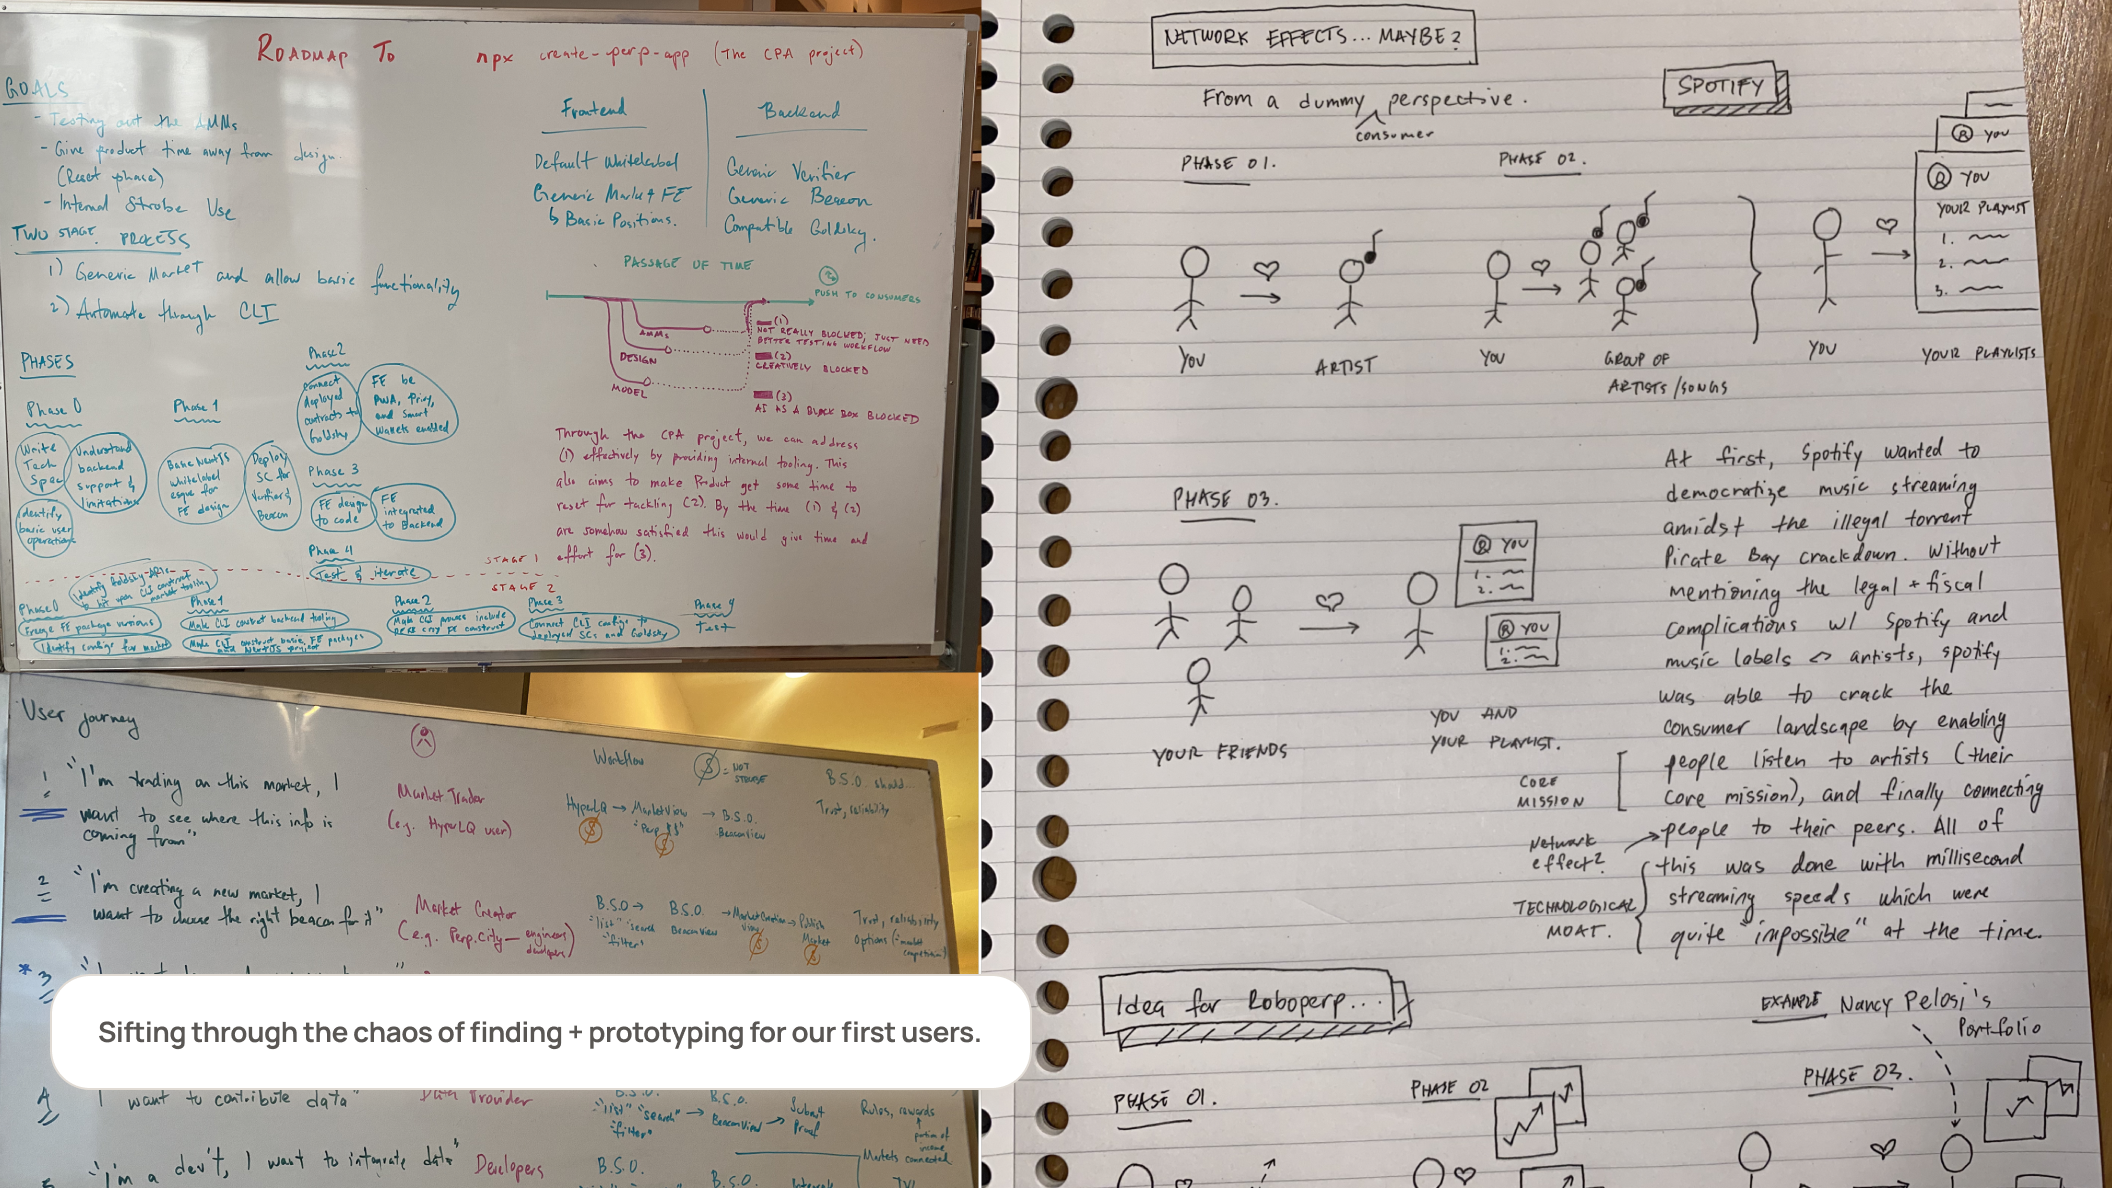 ROADMAP TO npx create-perp-app (The CPA project)
GOALS
- Testing out the AMMs
- Give product time away from design.
(Reset phase)
- Internal Strobe Use
TWO STAGE PROCESS
1) Generic Market and allow basic functionality
2) Automate through CLI
Frontend
Default Whitelabel
Generic Market FE
↳ Basic Positions.
Backend
Generic Verifier
Generic Beacon
Compatible Goldsky.
PASSAGE OF TIME
PUSH TO CONSUMERS
AMMs
DESIGN
MODEL
(1)
NOT REALLY BLOCKED; JUST NEED
BETTER TESTING WORKFLOW
(2)
CREATIVELY BLOCKED
(3)
AI AS A BLACK BOX BLOCKED
Through the CPA project, we can address
(1) effectively by providing internal tooling. This
also aims to make Product get some time to
reset for tackling (2). By the time (1) & (2)
are somehow satisfied this would give time and
effort for (3).
PHASES
Phase 0
Write
Tech
Spec
Understand
backend
support &
limitations
Identify
basic user
operations
Phase 1
Base NextJS
whitelabel
esque for
FE design
Deploy
SC for
Verifier &
Beacon
Phase 2
Connect
deployed
contracts to
Goldsky
FE be
PWA, Privy,
and smart
wallets enabled
Phase 3
FE design
to code
FE
integrated
to Backend
Phase 4
Test & iterate
STAGE 1
STAGE 2
Phase 0
Identify Goldsky APIs
to hit upon CLI construct
market tooling
Freeze FE package versions
Identify configs for market
Phase 1
Make CLI construct backend tooling
Make CLI construct basic FE packages
and NextJS project
Phase 2
Make CLI process include
FE construct
Phase 3
Connect CLI configs to
deployed SCs and Goldsky
Phase 4
Test
User journey
Workflow
= NOT
STROBE
B.S.O. should...
1
"I'm trading on this market, I
want to see where this info is
coming from"
Market Trader
(e.g. HyperLQ user)
HyperLQ → MarketView → B.S.O.
"Perp $$"
BeaconView
Trust, reliability
2
"I'm creating a new market, I
want to choose the right beacon for it"
Market Creator
(e.g. Perp.city— engineers/
developers)
B.S.O → B.S.O. → Market Creation → Publish
"list" "search"
"filter"
BeaconView
View
Market
Trust, reliability
options (market
competition)
* 3
Sifting through the chaos of finding + prototyping for our first users.
4
I want to contribute data"
Data Provider
B.S.O.
"list" "search" →
"filter"
B.S.O.
BeaconView →
Submit
Proof
Rules, rewards
portion of
income
Markets connected
TVL
"I'm a dev't, I want to integrate data"
Developers
B.S.O.
B.S.O.
NETWORK EFFECTS... MAYBE?
From a dummy perspective.
consumer
SPOTIFY
PHASE 01.
YOU
ARTIST
PHASE 02.
YOU
GROUP OF
ARTISTS/SONGS
YOU
R YOU
R YOU
YOUR PLAYLIST
1.
2.
3.
YOUR PLAYLISTS
PHASE 03.
YOUR FRIENDS
R YOU
1.
2.
R YOU
1.
2.
YOU AND
YOUR PLAYLIST.
At first, Spotify wanted to
democratize music streaming
amidst the illegal torrent
Pirate Bay crackdown. Without
mentioning the legal + fiscal
complications w/ Spotify and
music labels <> artists, spotify
was able to crack the
consumer landscape by enabling
people listen to artists (their
core mission), and finally connecting
people to their peers. All of
this was done with millisecond
streaming speeds which were
quite "impossible" at the time.
CORE
MISSION
Network
effect?
TECHNOLOGICAL
MOAT.
Idea for Roboperp...
EXAMPLE Nancy Pelosi's
Portfolio
PHASE 01.
PHASE 02
PHASE 03.